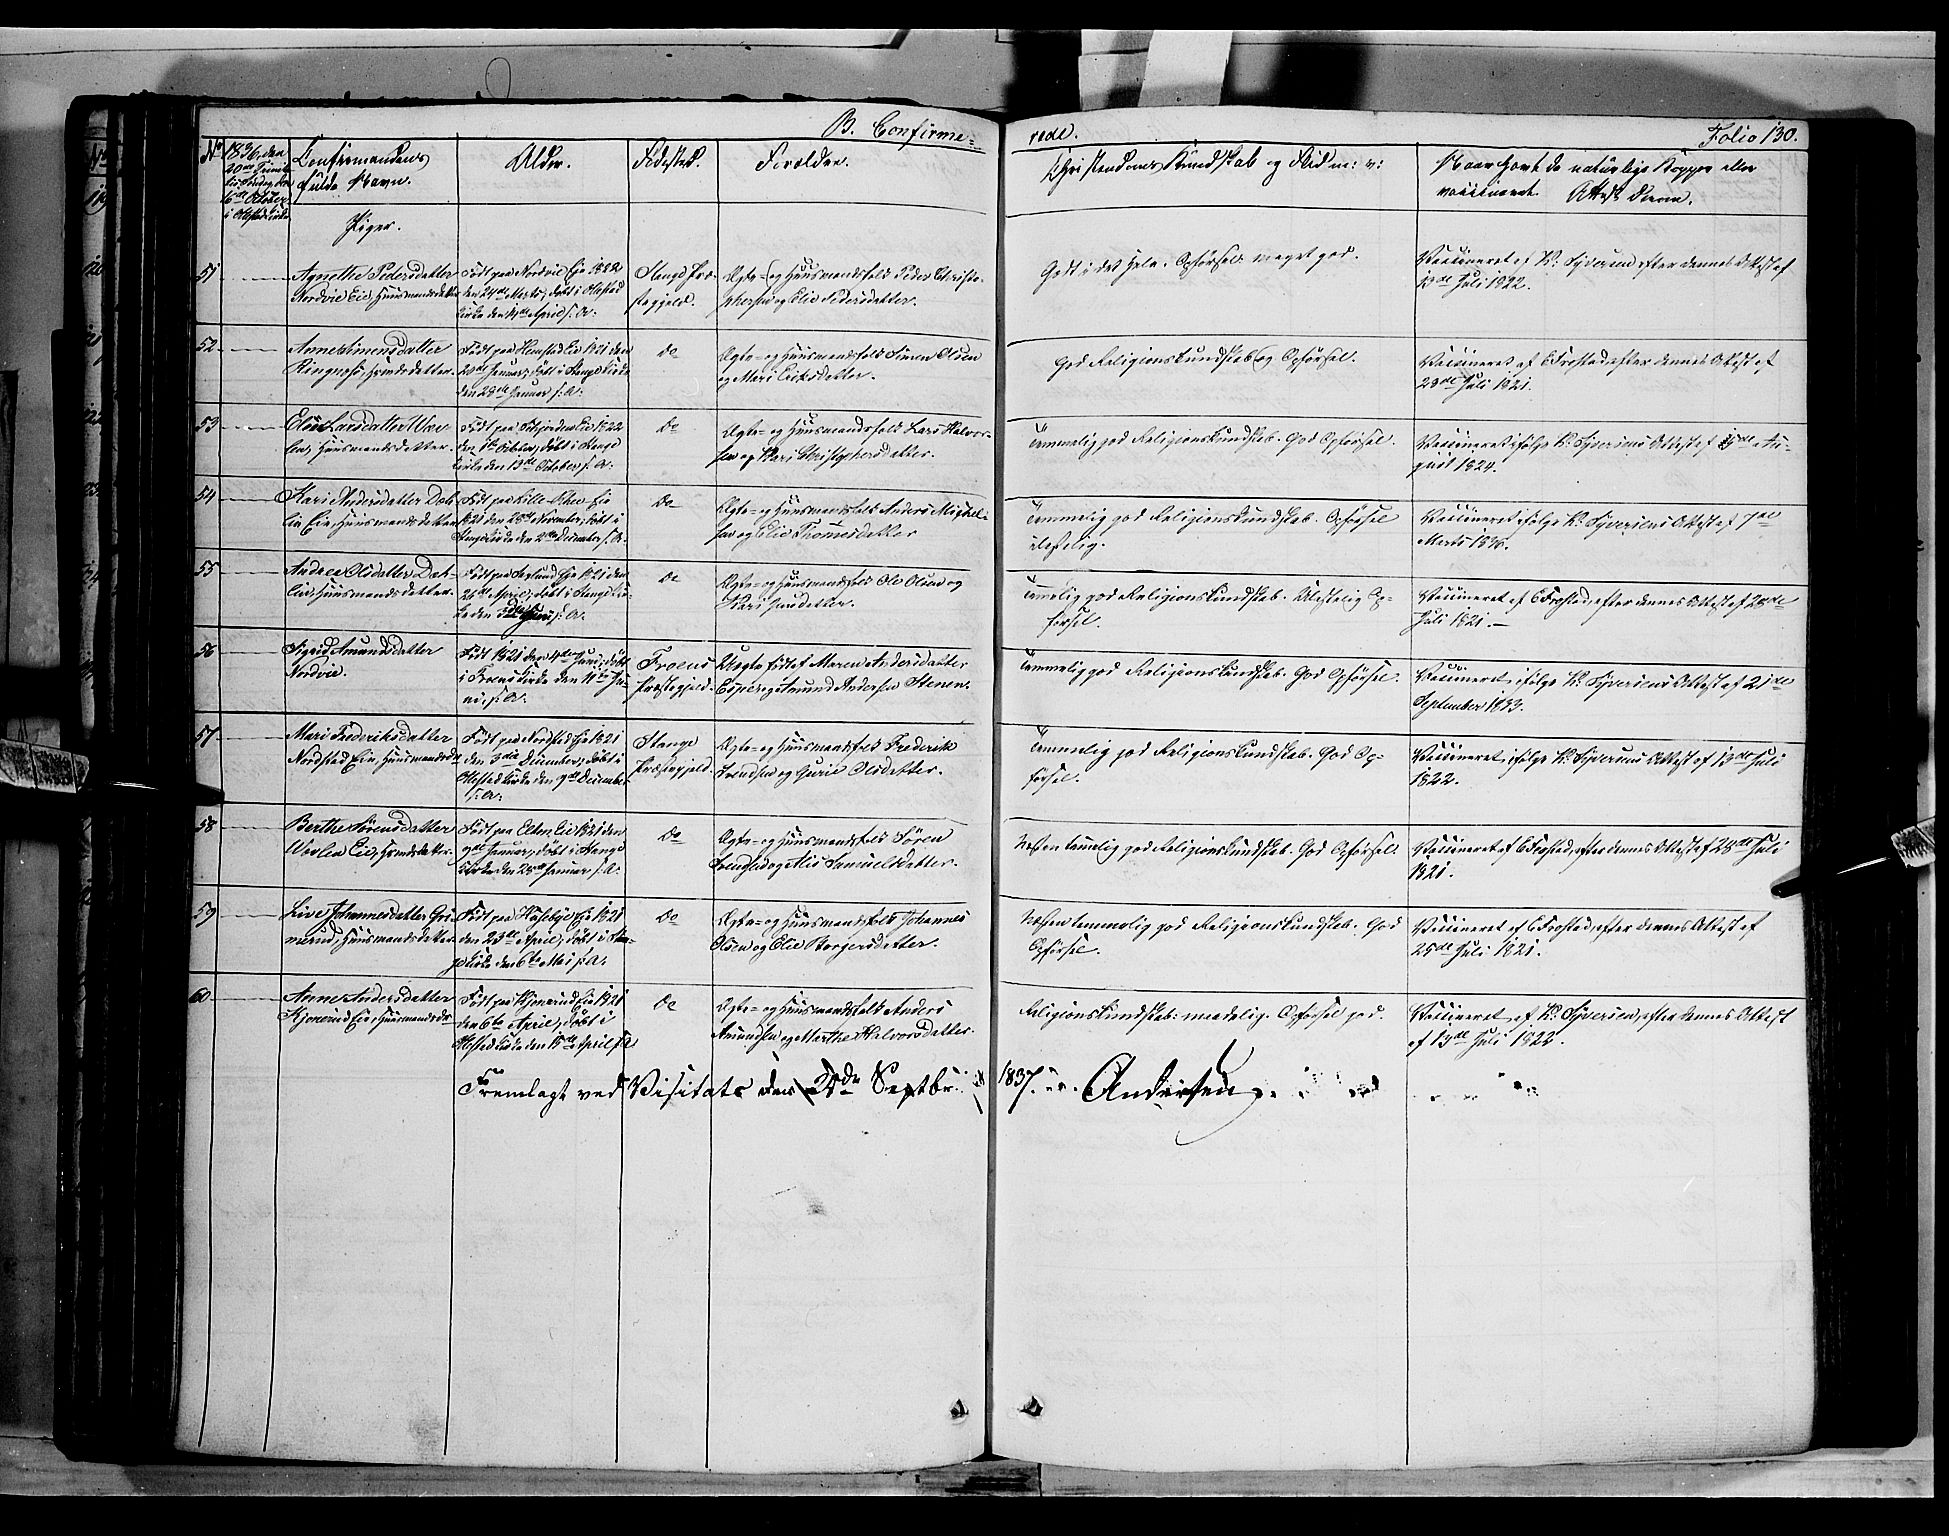 B. Confirme-
rede.
Folio 130.
No
1836, den
20de Trinita-
tis Søndag, den
16de October
i Ottestad Kirke
Confirmandens
fulde Navn.
Alder.
Fødested.
Forældre.
Christendoms Kundskab og Flid m: v:
Naar havt de naturlige Kopper eller
vaccineret. Attest derom.
Piger.
51
Agnethe Pedersdatter
Nordvie Eie, Huusmandsdatter
Født paa Nordvie Eje 1822
den 24de Marts, døbt i Ottestad
Kirke den 14de April s: A:
Stange Præ-
stegjeld.
Ægte- og Huusmandsfolk Peder Christo-
phersen og Elie Pedersdatter.
Godt i det Hele. Opførsel meget god.
Vaccineret af K: Syversen, efter dennes Attest af
13de Juli 1822.
52
Anne Simensdatter
Ringnæs, Huusmandsdatter.
Født paa Hemstad Eie 1821 den
20de Januar, døbt i Stange Kirke
den 28de Januar s: A:
do
Ægte- og Huusmandsfolk Simen Olsen
og Mari Eriksdatter.
God Religionskundskab og Opførsel.
Vaccineret af C Frostad, efter dennes Attest af
28de Juli 1821.
53
Elie Larsdatter Wæ-
len, Huusmandsdatter.
den October, døbt i Stange
Kirke den 13de October s: A:
do
Ægte- og Huusmandsfolk Lars Halvor-
sen og Kari Christophersdatter.
Temmelig god Religionskundskab. God Opførsel.
Vaccineret ifølge K: Syversens Attest af Au-
gust 1824.
54
Kari Andersdatter Dæh-
lin Eie, Huusmandsdatter
Født paa Lille Eie
1821 den 28de November, døbt i
Stange Kirke den 2den December s: A:
do
Ægte- og Huusmandsfolk Anders Michel-
sen og Elie Thomesdatter
Temmelig god Religionskundskab. Opførsel
ulastelig.
Vaccineret ifølge K: Syversens Attest af 7de
Marts
55
Andrea Olsdatter Dæh-
lin, Huusmandsdatter.
Født paa Eje 1821 den
April, døbt i Stange Kir-
ke den s: A:
do
Ægte- og Huusmandsfolk Ole Olsen og
Kari datter.
Temmelig god Religionskundskab. Ulastelig Op-
førsel.
Vaccineret af C Frostad, efter dennes Attest af 28de
Juli 1821.
56
Sigrid Amundsdatter
Nordvie.
Født 1821 den 4de Juni, døbt
i Froens Kirke den 11te Ju-
ni s: A:
Froens
Præstegjeld.
Uægte født af Maren Andersdatter
Amund Andersen
Temmelig god Religionskundskab. God Opførsel.
Vaccineret ifølge K: Syversens Attest af 21de
September 1833.
57
Mari Frederiksdatter
Nordstad Eie, Huusmandsda
Født paa Nordstad Eje 1821
den 3die December, døbt i
Ottestad Kirke den 9de December
s: A:
Stange
Præstegjeld.
Ægte- og Huusmandsfolk Frederik
Svendsen og Gurie Olsdatter.
Temmelig god Religionskundskab. God Op-
førsel.
Vaccineret ifølge K: Syversens Attest af 13de Juli
1822.
58
Berthe Sørensdatter
Wælen Eie, Huusmdsdatter.
Født paa Elton Eie 1821 den
9de Januar, døbt i Stange
Kirke den 28de Januar s: A:
do
Ægte- og Huusmandsfolk Søren
Svendsen og Alis Samuelsdatter.
Næsten temmelig god Religionskundskab. God Opførsel.
Vaccineret af C Frostad, efter dennes Attest af 28de Juli
1821.
59
Live Johannesdatter Gri-
merud, Huusmandsdatter
Født paa Huseby Eje 1821
den 23de April, døbt i Stan-
ge Kirke den 6te Mai s: A:
do
Ægte- og Huusmandsfolk Johannes
Olsen og Elie Borgersdatter.
Næsten temmelig god Religionskundskab. God
Opførsel.
Vaccineret af C Frostad, efter dennes Attest af
25de Juli 1821.
60
Anne Andersdatter
Kjonerud Eie, Huusmandsda
Født paa Kjonerud Eje 1821
den 6te April, døbt i
Ottestad Kirke den 15de April s: A
do
Ægte- og Huusmandsfolk Anders
Amundsen og Marthe Halvorsdatter.
Religionskundskab: maadelig. Opførsel god.
Vaccineret af K: Syversen, efter dennes Attest
af 13de Juli 1822.
Fremlagt ved Visitats den Septbr. 1837.
Andersen